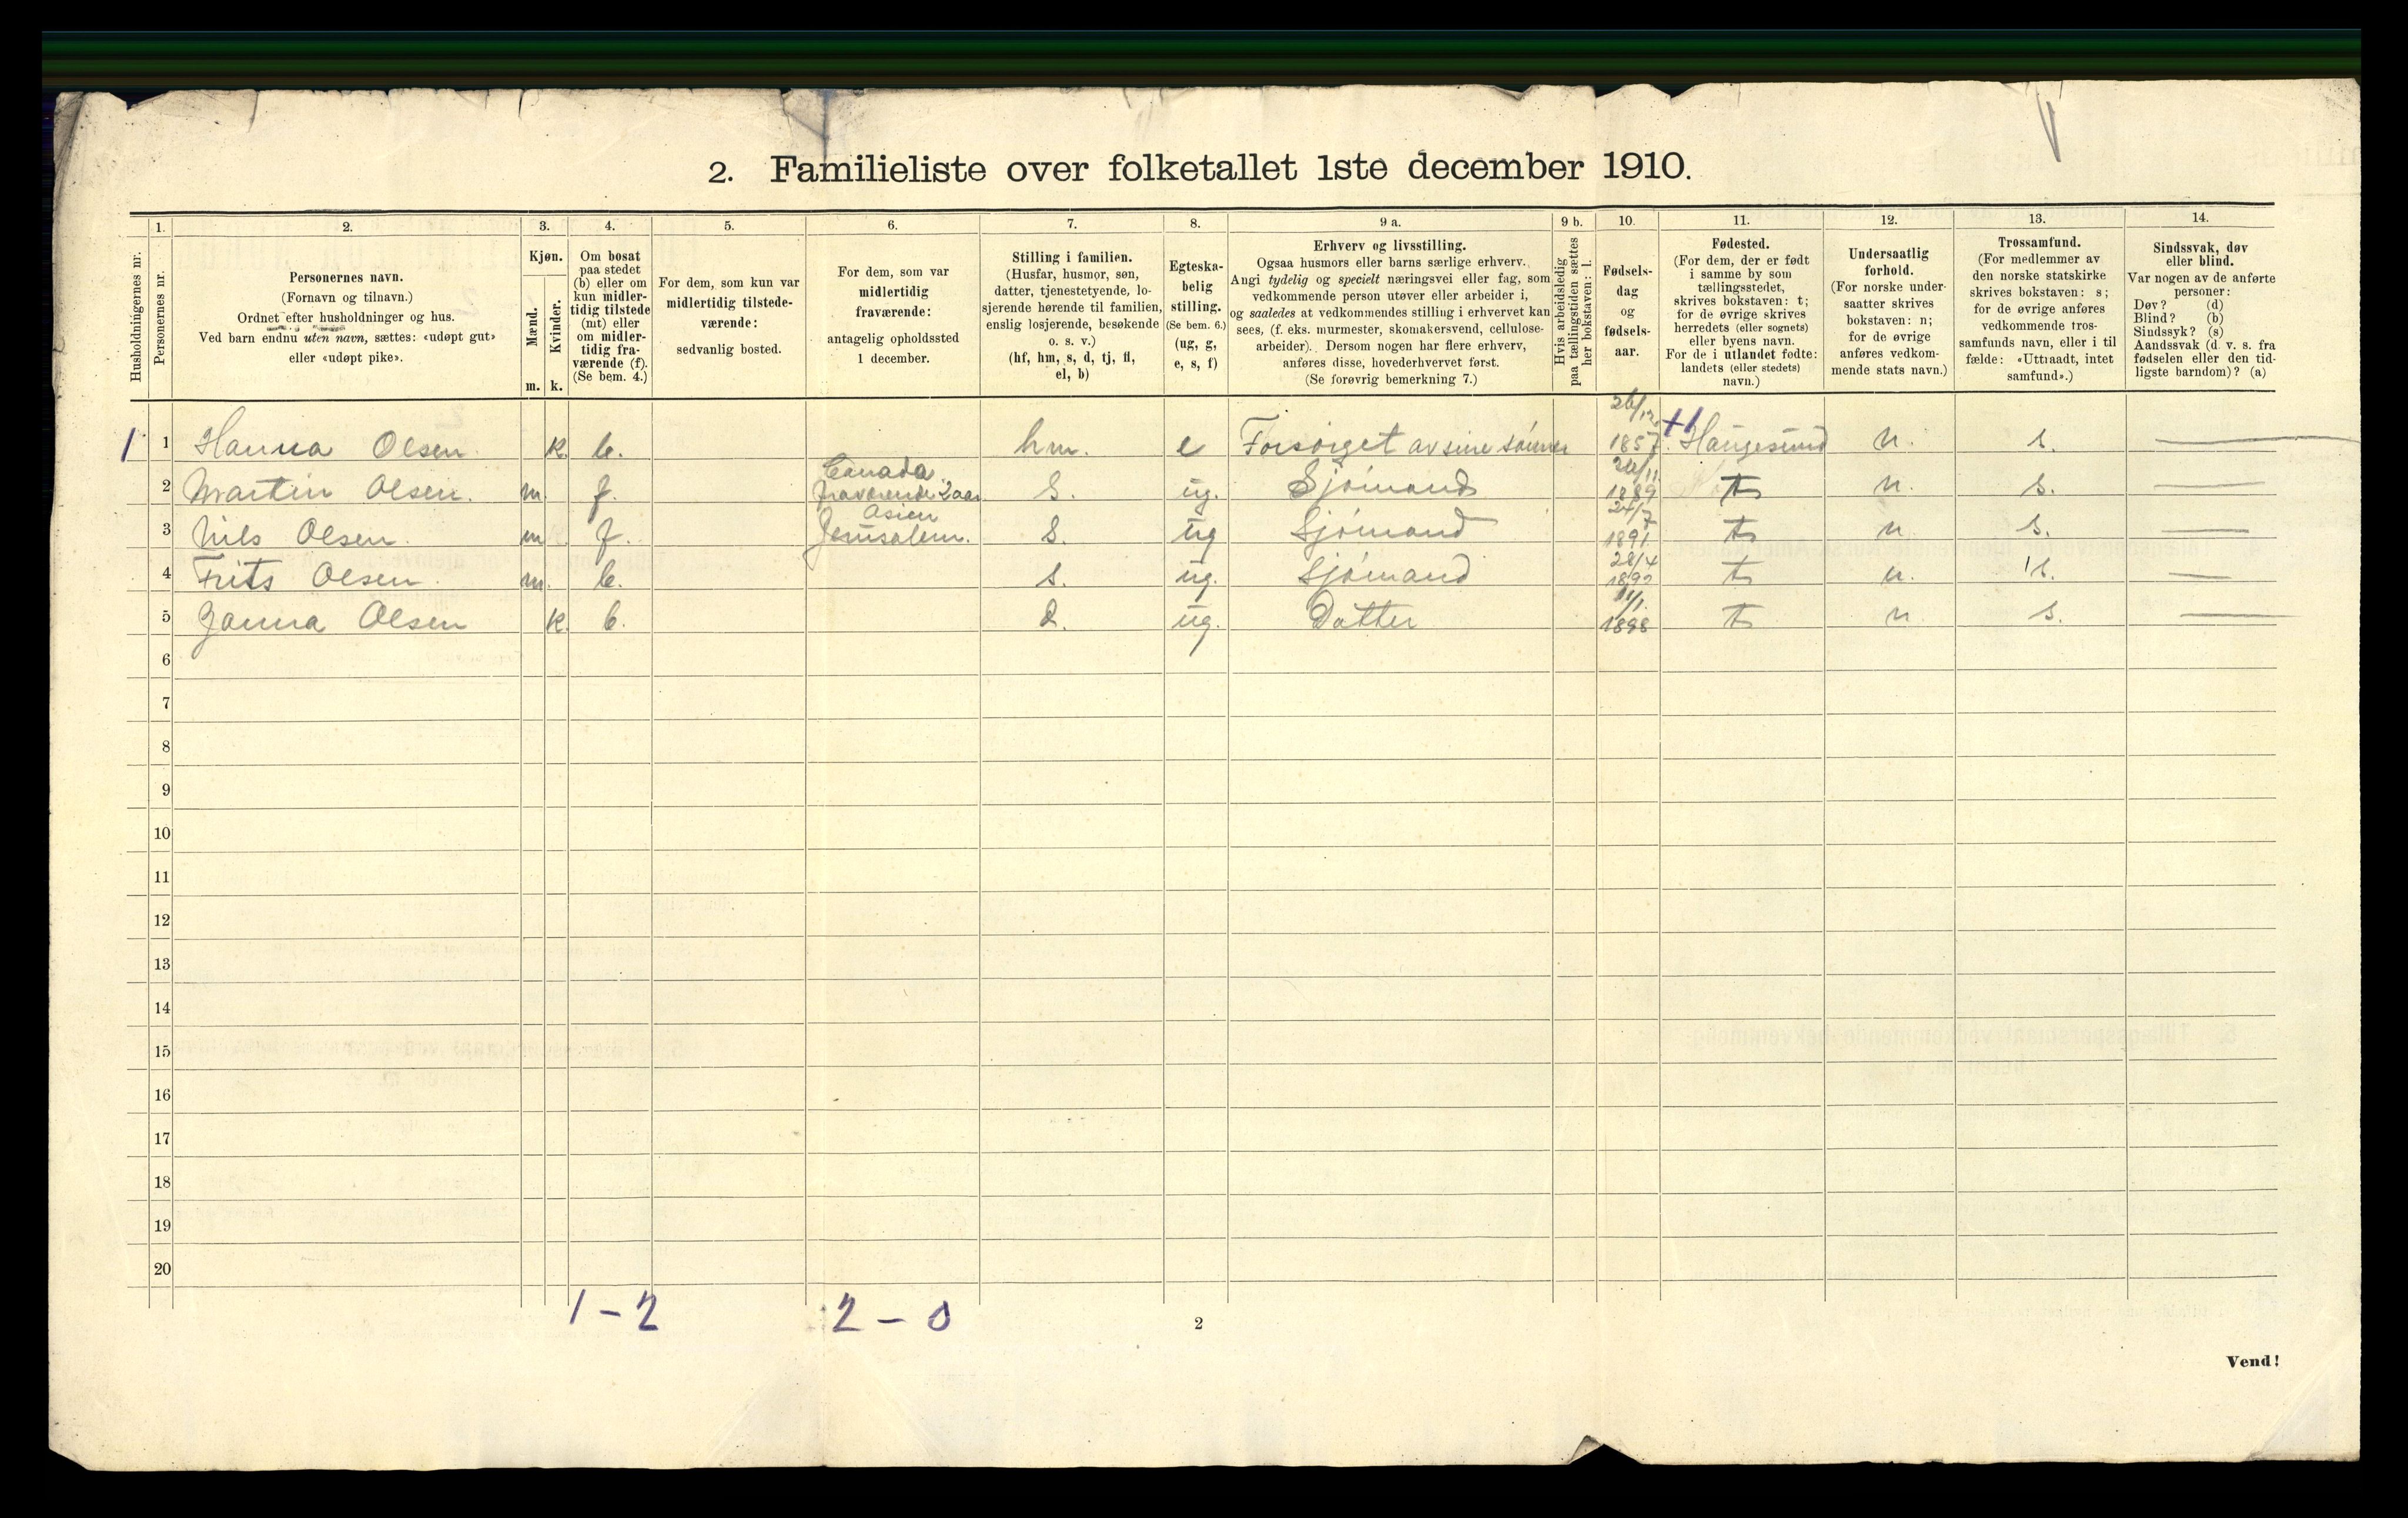 2. Familieliste over folketallet 1ste december 1910.
Husholdningernes nr.
1.
Personernes nr.
2.
Personernes navn.
(Fornavn og tilnavn.)
Ordnet efter husholdninger og hus.
Ved barn endnu uten navn, sættes: «udøpt gut»
eller «udøpt pike».
3.
Kjøn.
Mænd.
Kvinder.
m. k.
4.
Om bosat
paa stedet
(b) eller om
kun midler-
tidig tilstede
(mt) eller
om midler-
tidig fra-
værende (f).
(Se bem. 4.)
5.
For dem, som kun var
midlertidig tilstede-
værende:
sedvanlig bosted.
6.
For dem, som var
midlertidig
fraværende:
antagelig opholdssted
1 december.
7.
Stilling i familien.
(Husfar, husmor, søn,
datter, tjenestetyende, lo-
sjerende hørende til familien,
enslig losjerende, besøkende
o. s. v.)
(hf, hm, s, d, tj, fl,
el, b)
8.
Egteska-
belig
stilling.
(Se bem. 6.)
(ug, g,
e, s, f)
9 a.
Erhverv og livsstilling.
Ogsaa husmors eller barns særlige erhverv.
Angi tydelig og specielt næringsvei eller fag, som
vedkommende person utøver eller arbeider i,
og saaledes at vedkommendes stilling i erhvervet kan
sees, (f. eks. murmester, skomakersvend, cellulose-
arbeider). Dersom nogen har flere erhverv,
anføres disse, hovederhvervet først.
(Se forøvrig bemerkning 7.)
9 b.
Hvis arbeidsledig
paa tællingstiden sættes
her bokstaven: l.
10.
Fødsels-
dag
og
fødsels-
aar.
11.
Fødested.
(For dem, der er født
i samme by som
tællingsstedet,
skrives bokstaven: t;
for de øvrige skrives
herredets (eller sognets)
eller byens navn.
For de i utlandet fødte:
landets (eller stedets)
navn.)
12.
Undersaatlig
forhold.
(For norske under-
saatter skrives
bokstaven: n;
for de øvrige
anføres vedkom-
mende stats navn.)
13.
Trossamfund.
(For medlemmer av
den norske statskirke
skrives bokstaven: s;
for de øvrige anføres
vedkommende tros-
samfunds navn, eller i til
fælde: «Uttraadt, intet
samfund».)
14.
Sindssvak, døv
eller blind.
Var nogen av de anførte
personer:
Døv? (d)
Blind? (b)
Sindssyk? (s)
Aandssvak (d. v. s. fra
fødselen eller den tid-
ligste barndom)? (a)
1 1 Hanna Olsen. k. b. hm. e Forsørget av sine sønner 26/12. 1857. Haugesund n. s.
2 Martin Olsen. m. f. Canada fraværende 2 aar s. ug. Sjømand 1889 t n. s.
3 Nils Olsen. m f. Asien Jerusalem. s. ug Sjømand 24/7 1891. t n s.
4 Frits Olsen. m. b. s. ug. Sjømand 28/4 t n. s.
5 Janna Olsen k. b. d. ug. Datter 1898 t n s.
6
7
8
9
10
11
12
13
14
15
16
17
18
19
20
1 – 2 2 – 0
2
Vend!